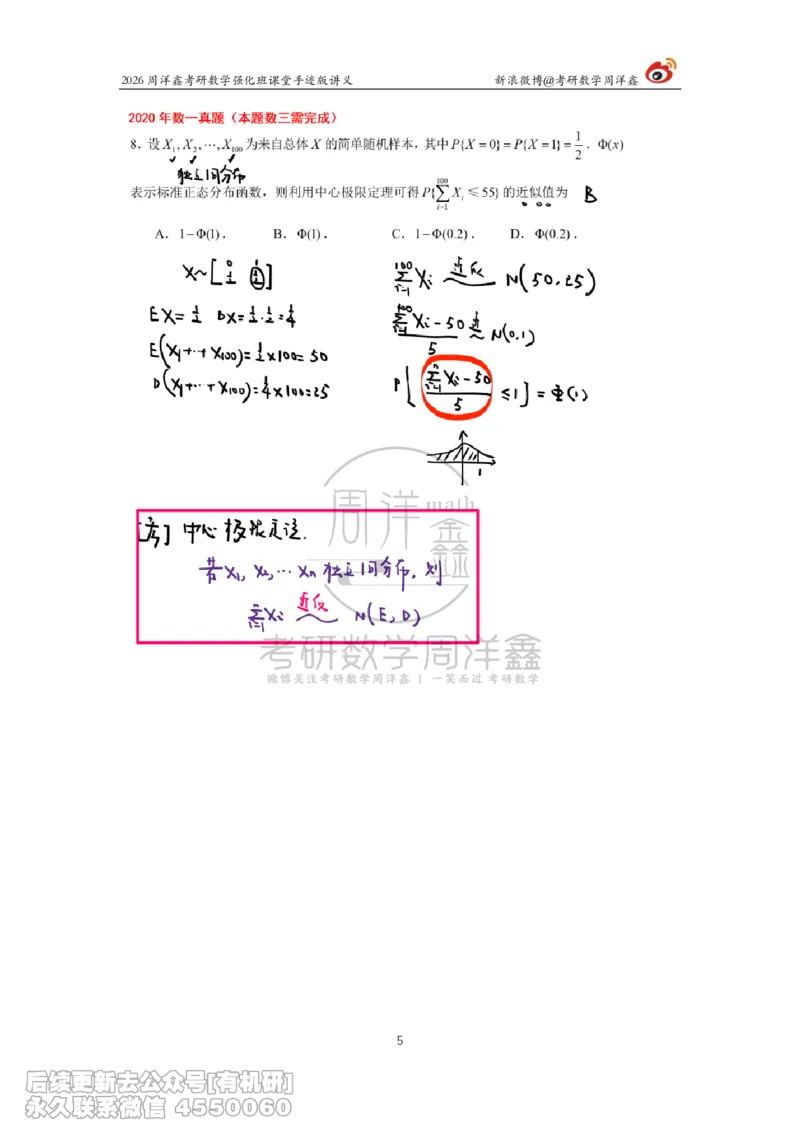 2026 周洋鑫考研数学强化班课堂手迹版讲义 新浪微博@考研数学周洋鑫
2020 年数一真题（本题数三需完成）
8．设 X₁, X₂, ⋯, X₁₀₀ 为来自总体 X 的简单随机样本，其中 P{X = 0} = P{X = 1} = 1/2，Φ(x)
独立同分布
表示标准正态分布函数，则利用中心极限定理可得 P{∑_{i=1}^{100} X_i ≤ 55} 的近似值为 B
A．1−Φ(1)． B．Φ(1)． C．1−Φ(0.2)． D．Φ(0.2)．
X~[0 1; 1/2 1/2]
EX = 1/2 DX = 1/2·1/2 = 1/4
E(X₁+⋯+X₁₀₀) = 1/2×100 = 50
D(X₁+⋯+X₁₀₀) = 1/4×100 = 25
∑_{i=1}^{100} X_i 近似~ N(50, 25)
(∑_{i=1}^{100} X_i − 50)/5 近~ N(0,1)
P[(∑_{i=1}^{n} X_i − 50)/5 ≤ 1] = Φ(1)
1
周洋鑫 math
[考] 中心极限定理.
若 X₁, X₂, ⋯ Xn 独立同分布, 则
∑_{i=1}^{n} X_i 近似~ N(E, D)
考研数学周洋鑫
微博关注考研数学周洋鑫 | 一笑而过 考研数学
5
后续更新去公众号[有机研]
永久联系微信 4550060